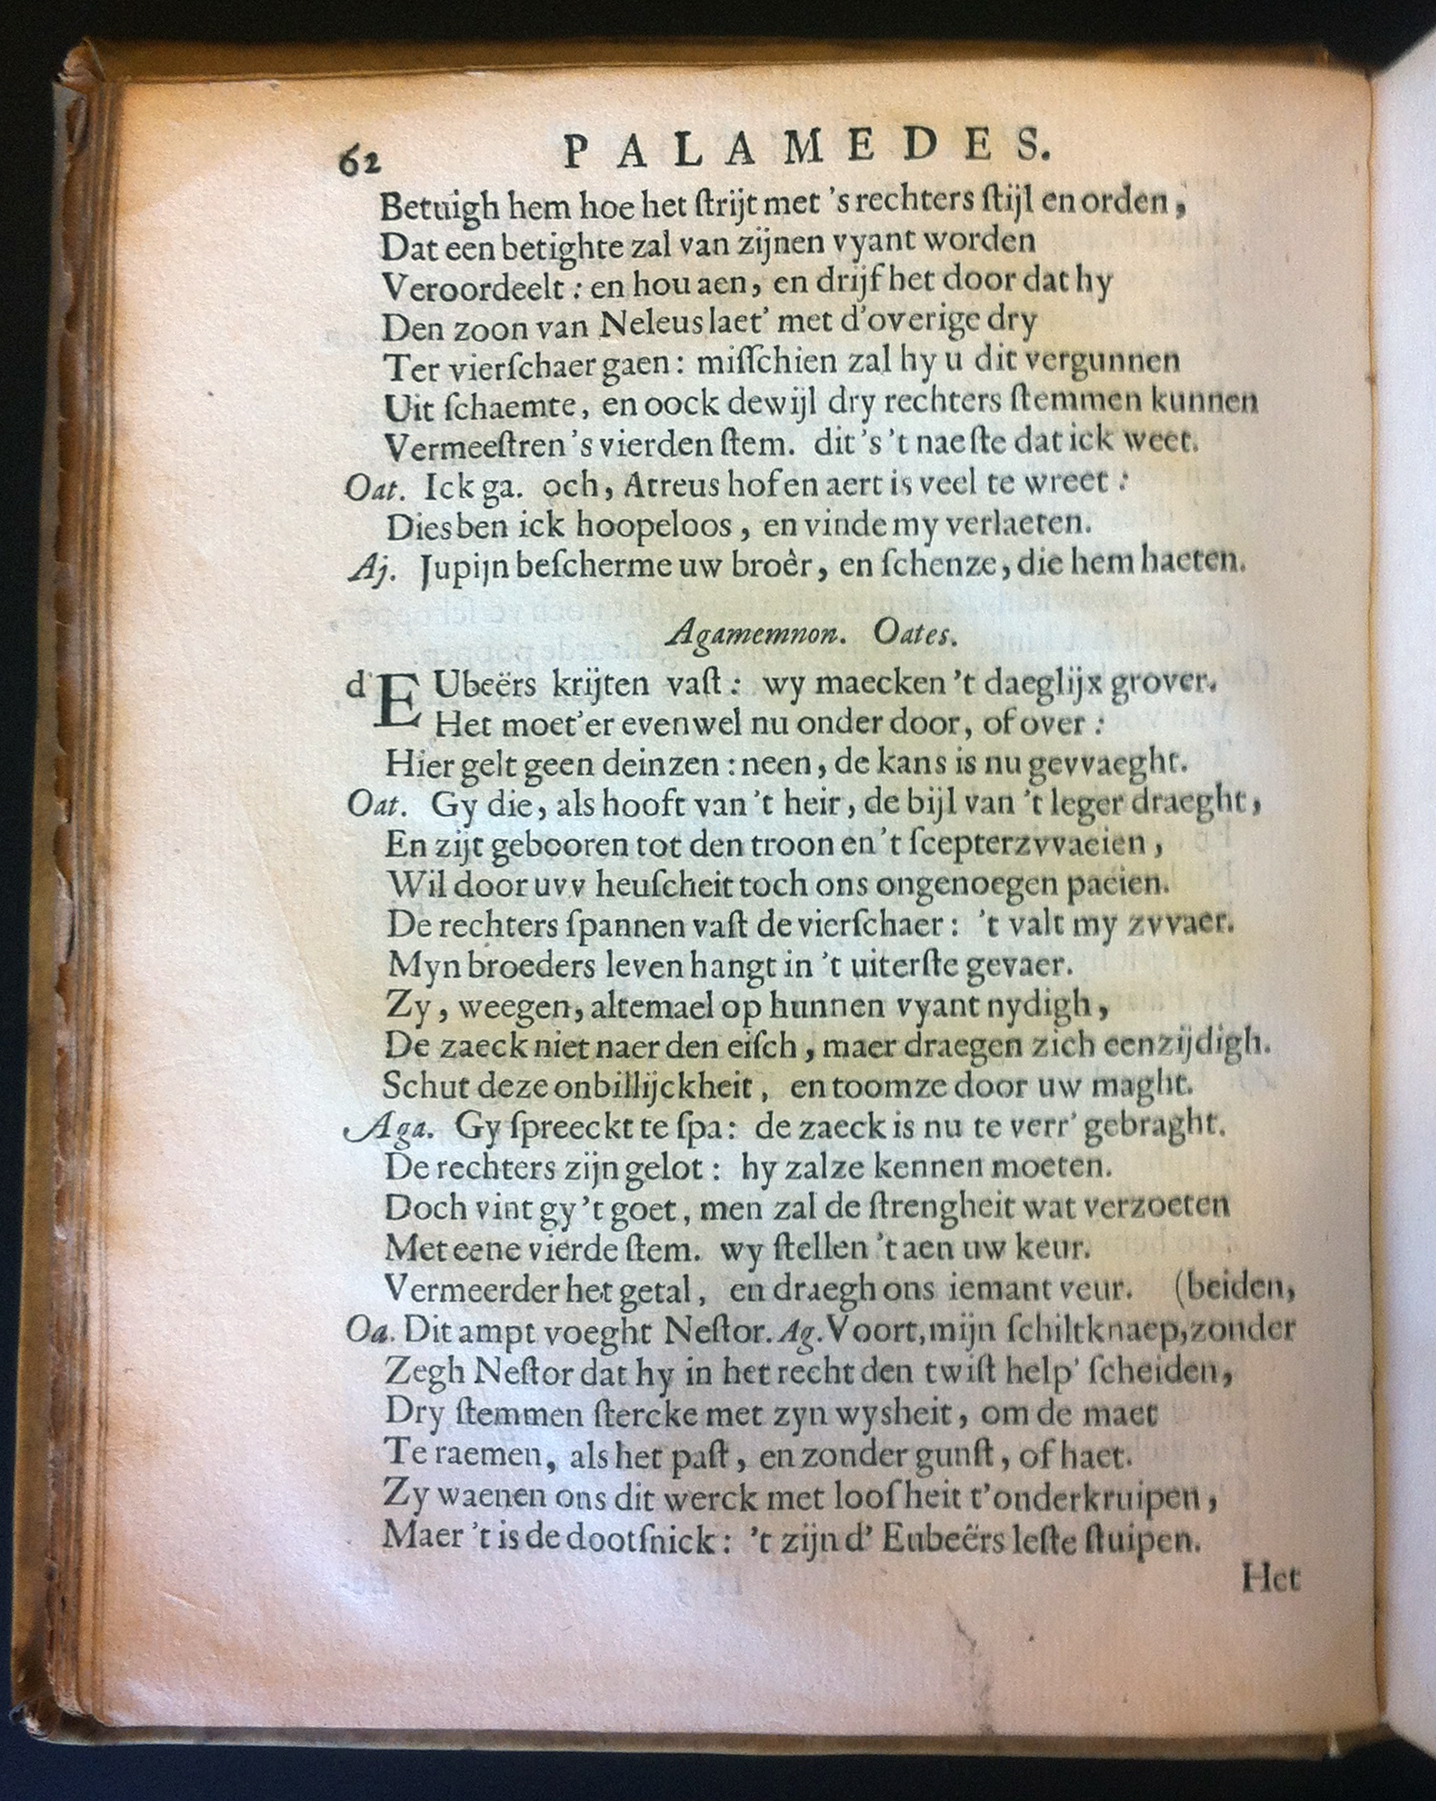 62 PALAMEDES.
Betuigh hem hoe het ſtrijt met 's rechters ſtijl en orden,
Dat een betighte zal van zijnen vyant worden
Veroordeelt: en hou aen, en drijf het door dat hy
Den zoon van Neleus laet' met d'overige dry
Ter vierſchaer gaen: miſſchien zal hy u dit vergunnen
Uit ſchaemte, en oock dewijl dry rechters ſtemmen kunnen
Vermeeſtren 's vierden ſtem. dit 's 't naeſte dat ick weet.
Oat. Ick ga. och, Atreus hof en aert is veel te wreet:
Dies ben ick hoopeloos, en vinde my verlaeten.
Aj. Jupijn beſcherme uw broêr, en ſchenze, die hem haeten.
Agamemnon. Oates.
d'EUbeërs krijten vaſt: wy maecken 't daeglijx grover.
Het moet'er evenwel nu onder door, of over:
Hier gelt geen deinzen: neen, de kans is nu gevvaeght.
Oat. Gy die, als hooft van 't heir, de bijl van 't leger draeght,
En zijt gebooren tot den troon en 't ſcepterzvvaeien,
Wil door uvv heuſcheit toch ons ongenoegen paeien.
De rechters ſpannen vaſt de vierſchaer: 't valt my zvvaer.
Myn broeders leven hangt in 't uiterſte gevaer.
Zy, weegen, altemael op hunnen vyant nydigh,
De zaeck niet naer den eiſch, maer draegen zich eenzijdigh.
Schut deze onbillijckheit, en toomze door uw maght.
Aga. Gy ſpreeckt te ſpa: de zaeck is nu te verr' gebraght.
De rechters zijn gelot: hy zalze kennen moeten.
Doch vint gy 't goet, men zal de ſtrengheit wat verzoeten
Met eene vierde ſtem. wy ſtellen 't aen uw keur.
Vermeerder het getal, en draegh ons iemant veur. (beiden,
Oa. Dit ampt voeght Neſtor. Ag. Voort, mijn ſchiltknaep, zonder
Zegh Neſtor dat hy in het recht den twiſt help' ſcheiden,
Dry ſtemmen ſtercke met zyn wysheit, om de maet
Te raemen, als het paſt, en zonder gunſt, of haet.
Zy waenen ons dit werck met loosheit t'onderkruipen,
Maer 't is de dootſnick: 't zijn d' Eubeërs leſte ſtuipen.
Het